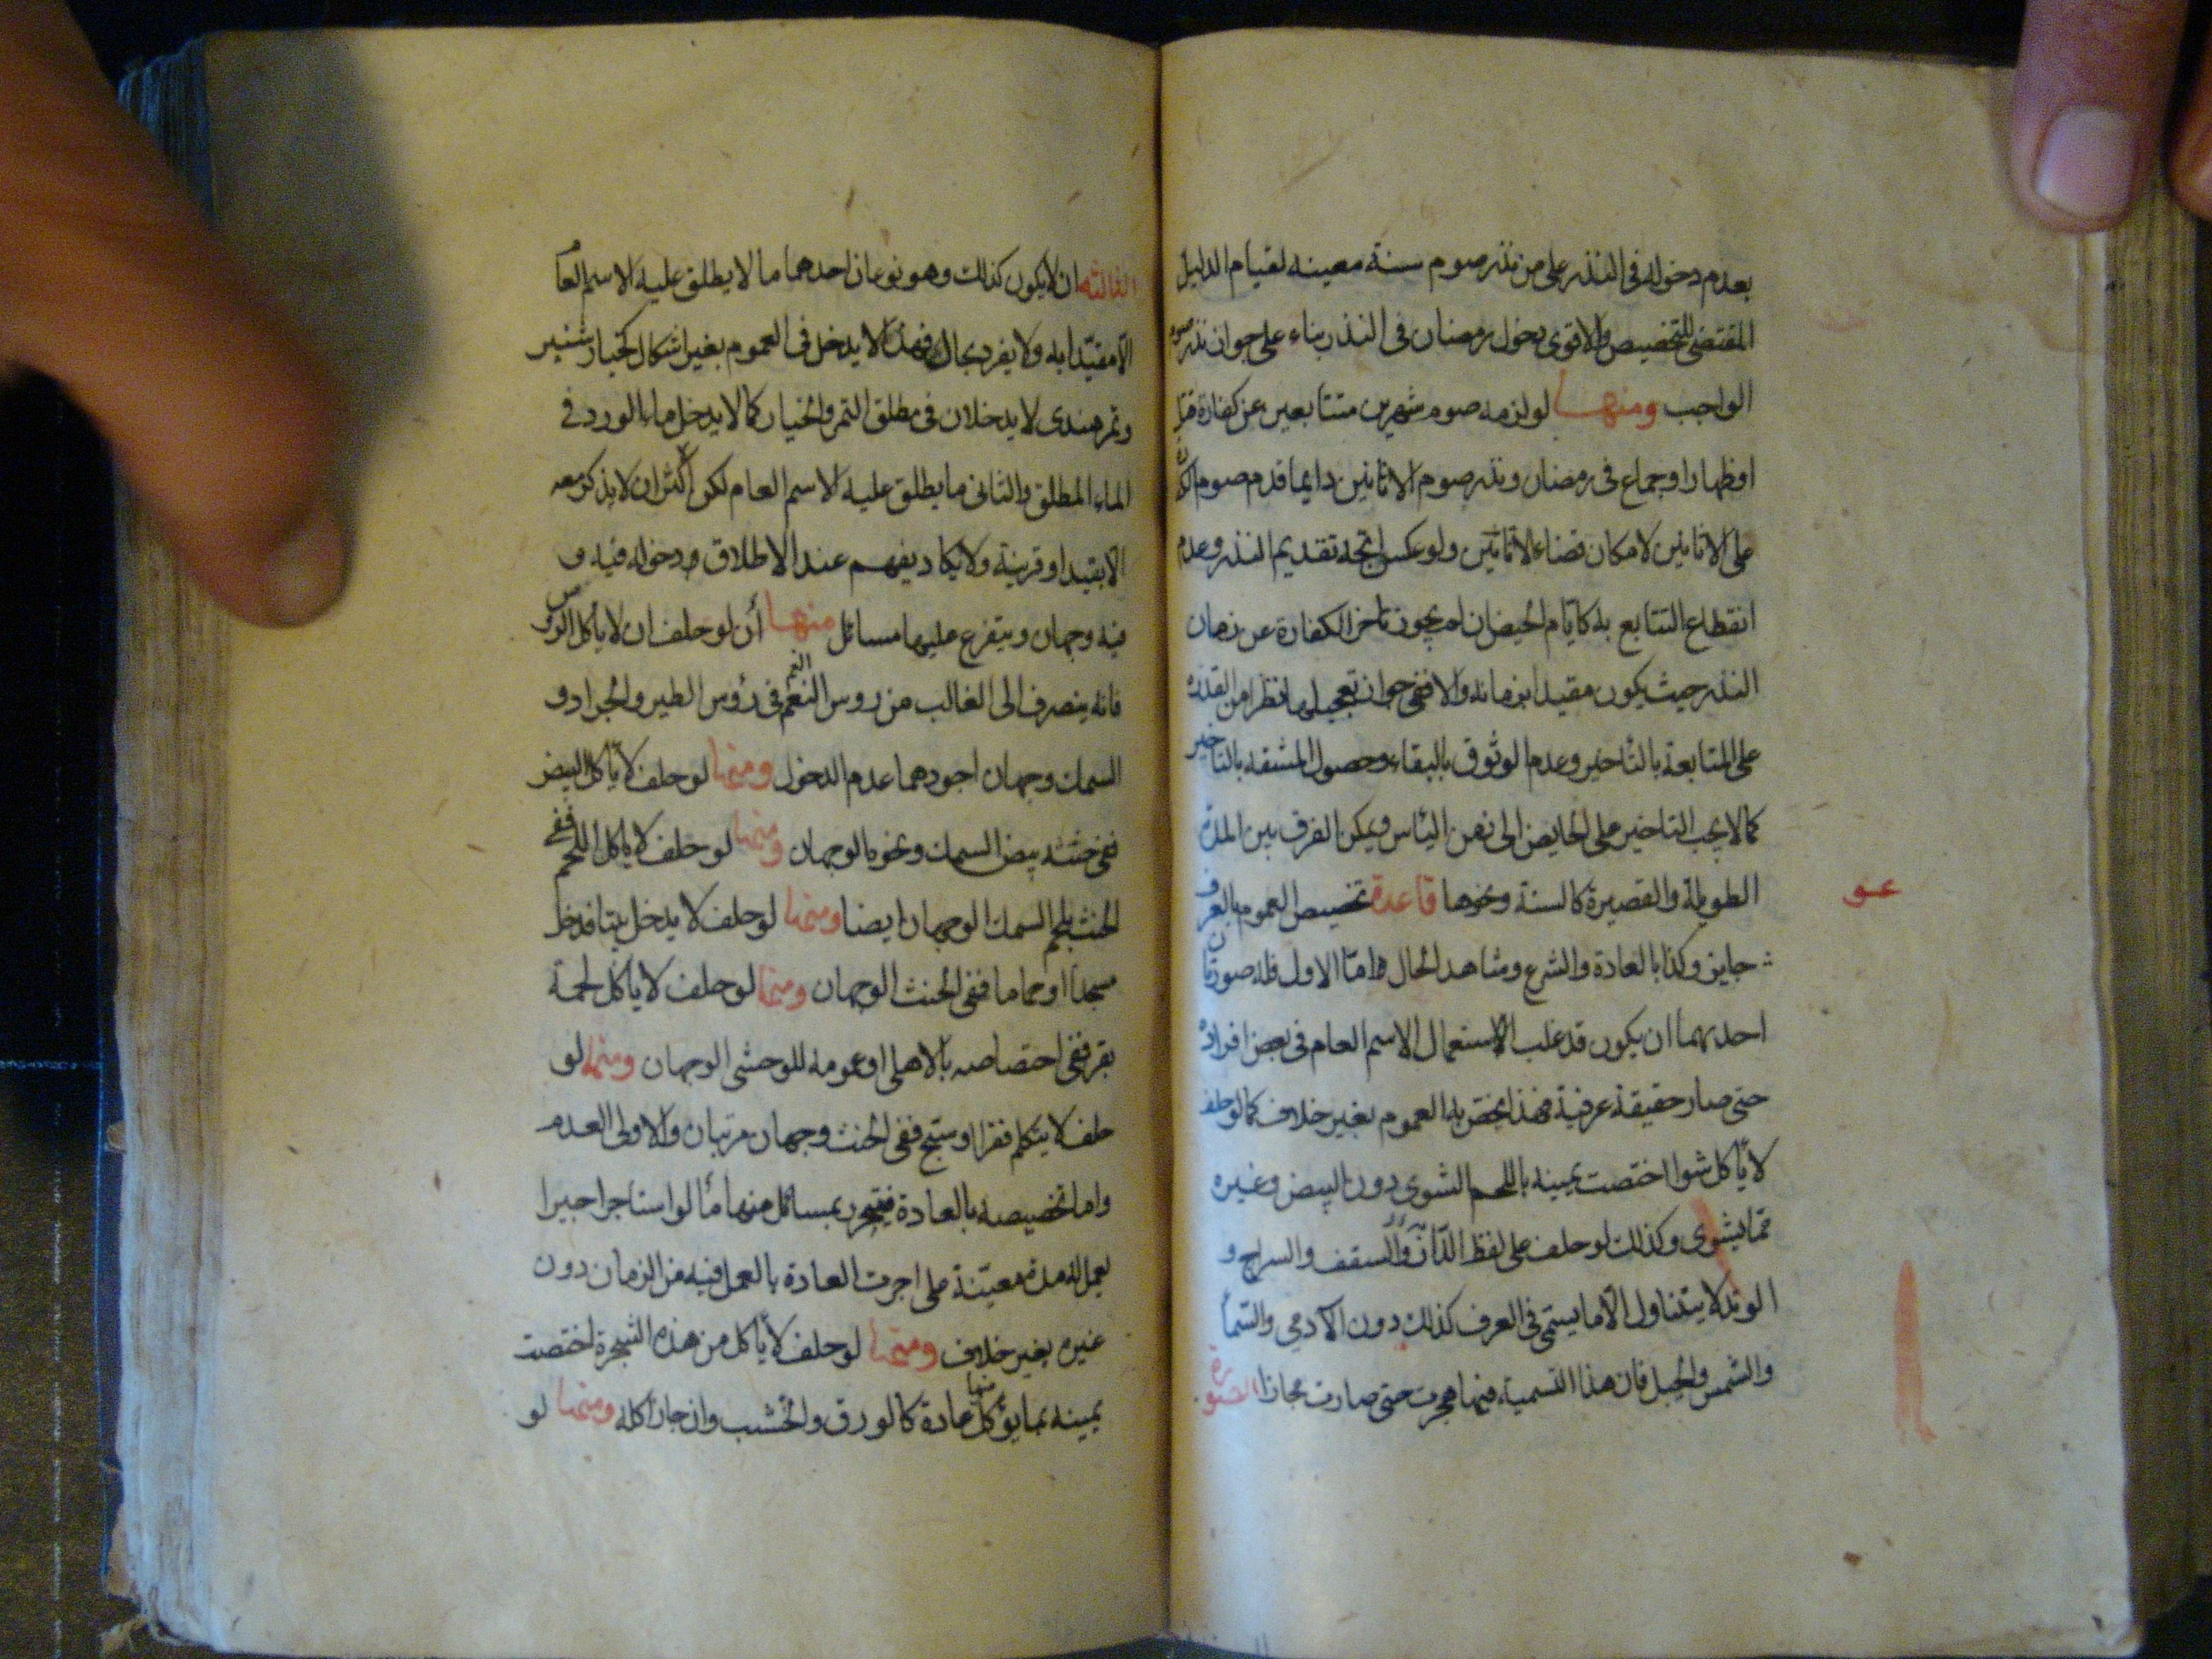 بعدم دخوله فى النذر على من نذر صوم سنة معينه لقيام الدليل
المقتضى للتخصيص والاقوى دخول رمضان فى النذر بناء على جواز نذر صوم
الواجب ومنها لو لزمه صوم شهرين متتابعين عن كفارة قتل
او ظهار او جماع فى رمضان ونذر صوم الاثانين دايما قدم صوم
على الاثانين لامكان قضاء الاثانين ولو عكس اتجه تقديم النذر وعدم
انقطاع التتابع به كايام الحيض ان لم يجوز تاخر الكفارة عن زمان
النذر حيث يكون مقيدا بزمانه والا ففى جواز تعجيلها نظر امن القدره
على المتابعة بالتاخير وعدم الوثوق بالبقاء وحصول المشقه بالتاخير
كما لا يجب التاخير على الحايض الى زمن الياس ويمكن الفرق بين المدة
الطويلة والقصيرة كالسنة ونحوها قاعدة تخصيص العموم بالعرف
عو
جايز وكذا بالعادة والشرع ومشاهد الحال واما الاول فله صورتان
احديهما ان يكون قد غلب الاستعمال الاسم العام فى بعض افراده
حتى صار حقيقة عرفية فهذا يخص به العموم بغير خلاف كما لو حلف
لا ياكل شوا اختصت يمينه باللحم الشوى دون البيض وغيره
مما يشوى وكذلك لو حلف على لفظ الدابة والسقف والسراج و
الوتد لا يتناول الا ما يسمى فى العرف كذلك دون الادمى والسما
والشمس والجبل فان هذا التسمية فيها هجرت حتى صارت مجازا الصورة
الثالثه ان لا يكون كذلك وهو نوعان احدهما ما لا يطلق عليه الاسم العام
الا مقيدا به ولا يفرد بحال فهذا لا يدخل فى العموم بغير اشكال كخيار شنبر
وتمر هندى لا يدخلان فى مطلق التمر والخيار كما لا يدخل ماء الورد فى
الماء المطلق والثانى ما يطلق عليه الاسم العام لكن اكثر ان لا يذكر معه
الا بقيد او قرينة ولا يكاد يفهم عند الاطلاق ودخوله فيه و
فيه وجهان ويتفرع عليها مسائل منها أن لو حلف ان لا ياكل الروس
فانه ينصرف الى الغالب من روس النعم فى رؤس الطير والجراد و
السمك وجهان اجودهما عدم الدخول ومنها لو حلف لا ياكل البيض
ففى حنثه ببيض السمك ونحوه الوجهان ومنها لو حلف لا ياكل اللحم ففى
الحنث بلحم السمك الوجهان ايضا ومنها لو حلف لا يدخل بيتا فدخل
مسجدا او حماما ففى الحنث الوجهان ومنها لو حلف لا ياكل لحمة
بقر ففى اختصاصه بالاهلى او عمومه للوحشى الوجهان ومنها لو
حلف لا يتكلم فقرا او سبح ففى الحنث وجهان مرتبان والاولى العدم
واما تخصيصه بالعادة بمسائل منها ما لو استاجر اجيرا
يعمل له مدة معينة على اجرت العادة بالعمل فيه من الزمان دون
غيره بغير خلاف ومنها لو حلف لا ياكل من هذه الشجرة اختصت
يمينه بما يؤكل منها عادة كالورق والخشب وان جاز اكله ومنها لو